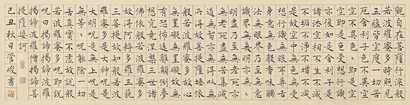 觀自在菩薩行深般
若波羅蜜多時照見
五蘊皆空度一切苦
厄舍利子色不異空
空不異色色即是空
空即是色受想行識
亦復如是舍利子是
諸法空相不生不滅
不垢不淨不增不減
是故空中無色無受
想行識無眼耳鼻舌
身意無色聲香味觸
法無眼界乃至無意
識界無無明亦無無
明盡乃至無老死亦
無老死盡無苦集滅
道無智亦無得以無
所得故菩提薩埵依
般若波羅蜜多故心
無罣礙無罣礙故無
有恐怖遠離顛倒夢
想究竟涅槃三世諸
佛依般若波羅蜜多
故得阿耨多羅三藐
三菩提故知般若波
羅蜜多是大神咒是
大明咒是無上咒是
無等等咒能除一切
苦真實不虛故說般
若波羅蜜多咒即說
咒曰揭諦揭諦波羅
揭諦波羅僧揭諦菩
提薩婆訶
己丑秋日